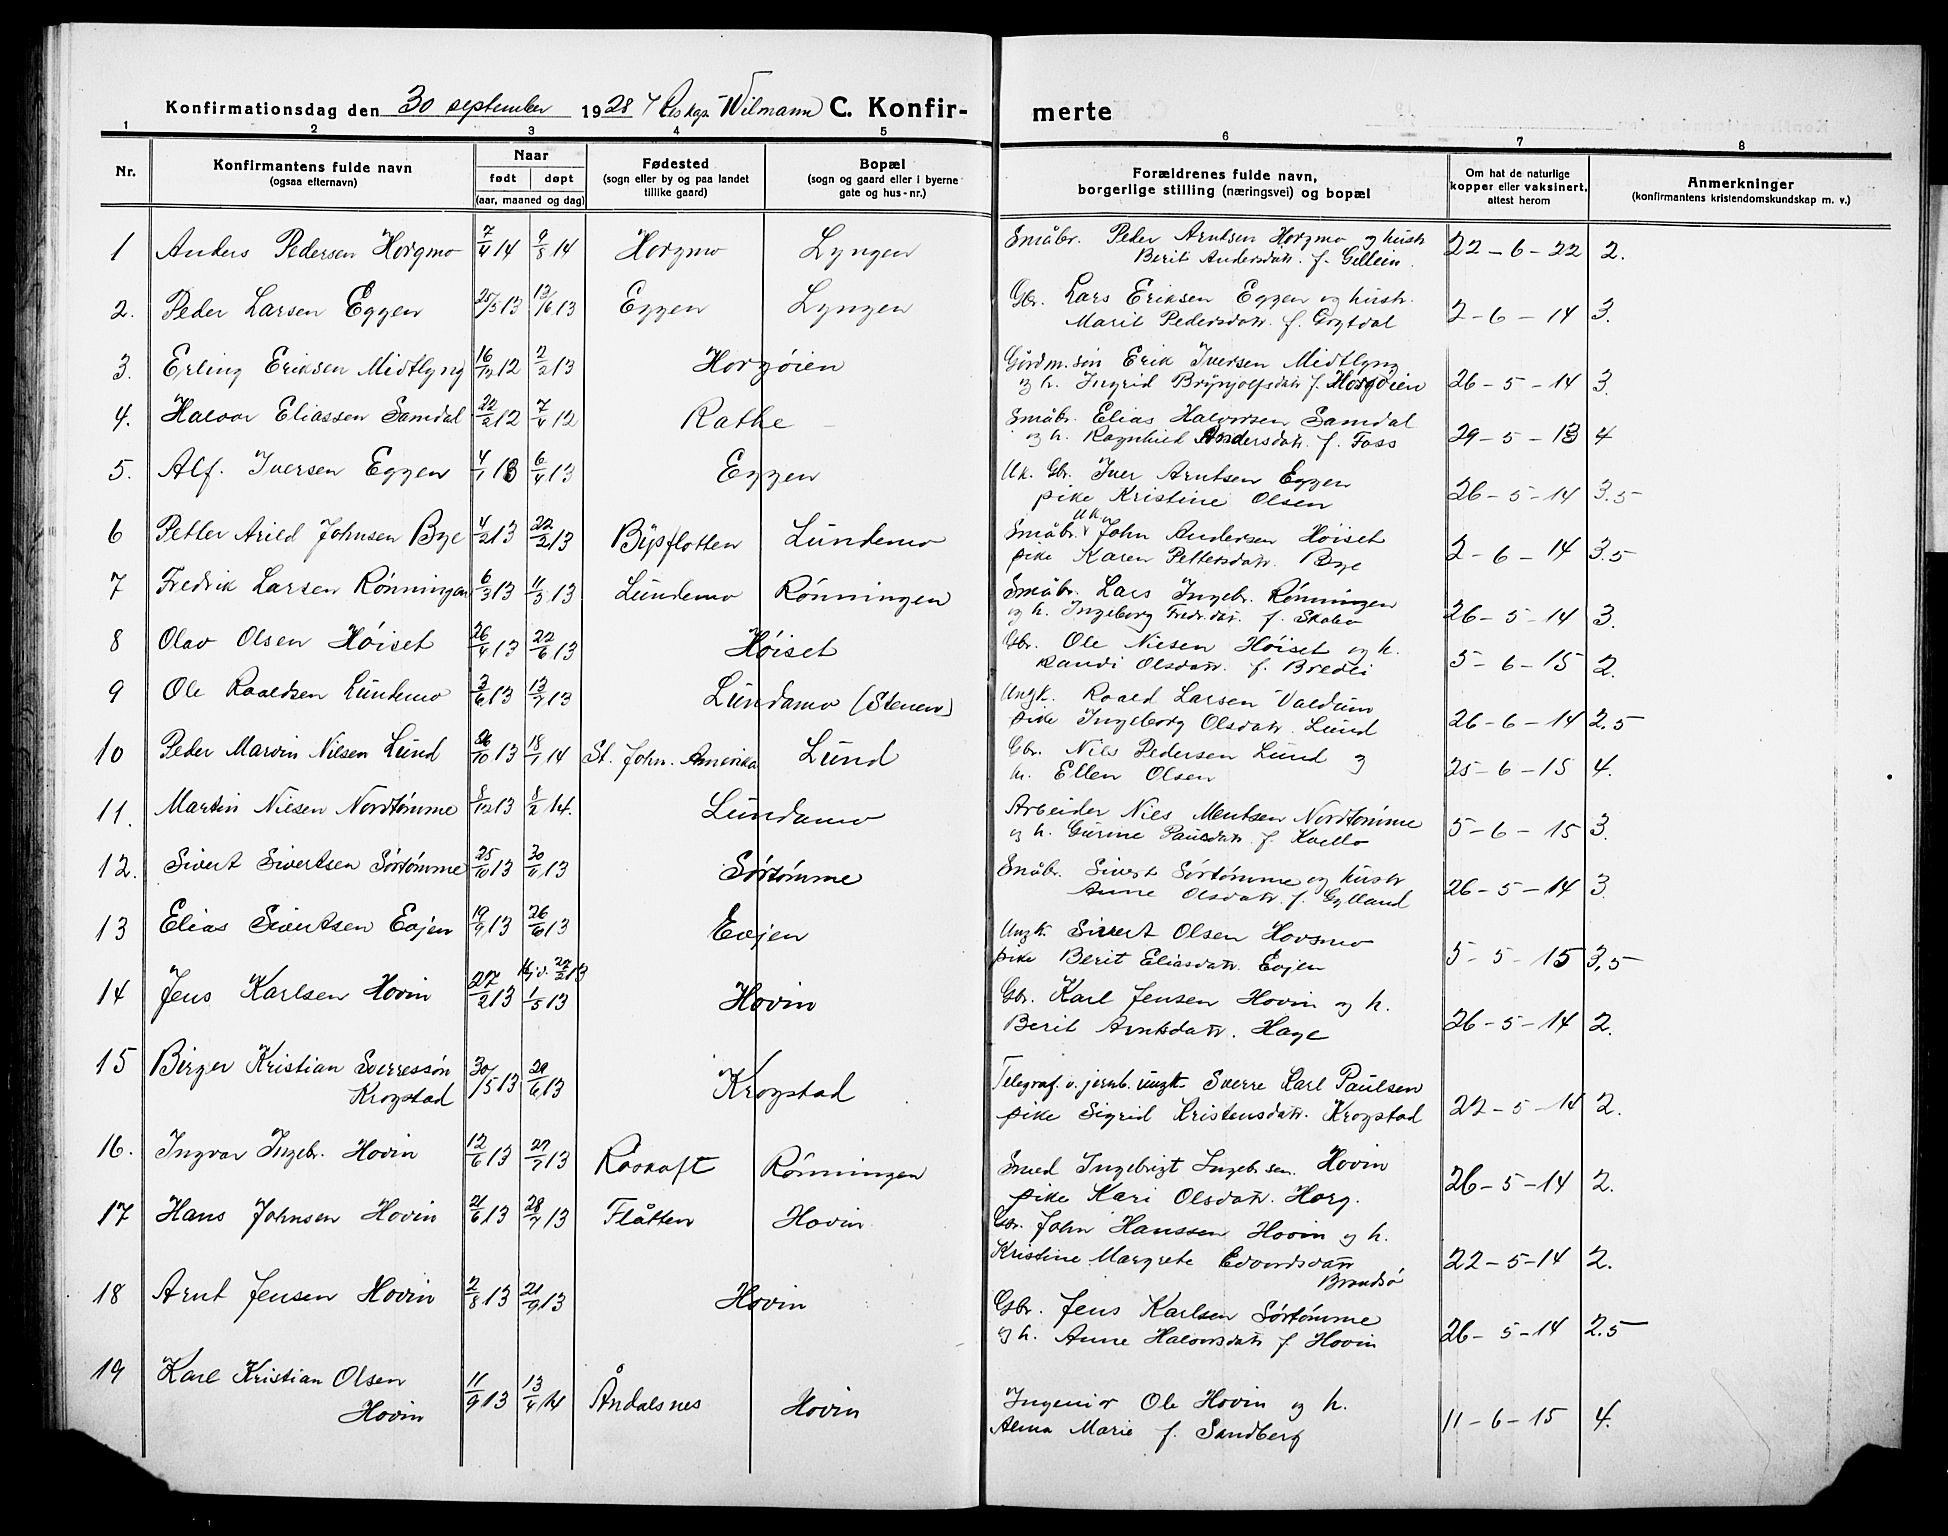 Konfirmationsdag den 30 september 1928 Wilmann C. Konfir-
merte
1 2 3 4 5 6 7 8
Nr.
Konfirmantens fulde navn
(ogsaa efternavn)
Naar
født døpt
(aar, maaned og dag)
Fødested
(sogn eller by og paa landet
tillike gaard)
Bopæl
(sogn og gaard eller i byerne
gate og hus-nr.)
Forældrenes fulde navn,
borgerlige stilling (næringsvei) og bopæl
Om hat de naturlige
kopper eller vaksinert,
attest herom
Anmerkninger
(konfirmantens kristendomskundskap m. v.)
1 Anders Pedersen Horgmo 7/4 14 9/8 14 Horgmo Lyngen Småbr. Peder Arntsen Horgmo og hustr
Berit Andersdatr. f. Gellein. 22-6-22 2.
2. Peder Larsen Eggen 25/5 13 Eggen Lyngen Gbr. Lars Eriksen Eggen og hustr.
Marit Pedersdatr. f. Gogtdal 2-6-14 3.
3. Erling Eriksen Midtlyng 16/12 12 2/2 13 Horgøien Gårdm. søn Erik Iversen Midtlyng
og h. Ingrid Brynjolfsdatr f. Horgøien 26-5-14 3.
4. Halvor Eliassen Samdal 22/2 12 7/4 12 Rathe Småbr. Elias Halvorsen Samdal
og h. Ragnhild Andersdatr. f. Foss 29-5-13 4
5. Alf. Iversen Eggen 4/1 13 6/4 13 Eggen Uk. Gbr. Iver Arntsen Eggen
pike Kristine Olsen 26-5-14 3.5
6 Petter Arild Johnsen Bye 4/2 13 22/2 13 Bysflotten Lundemo Småbr. Uk. John Andersen Høiset
pike Karen Pettersdatr. Bye 2-6-14 3.5
7 Fredrik Larsen Rønningen 6/3 13 Lundemo Rønningen Småbr. Lars Ingebr. Rønningen
og h. Ingeborg Fredr.datr. f. Skabo 26-5-14 3.
8 Olav Olsen Høiset 26/4 13 22/6 13 Høiset Gbr. Ole Nilsen Høiset og h.
Randi Olsdatr. f. Bredli 5-6-15 2.
9 Ole Roaldsen Lundemo 3/6 13 13/7 13 Lundamo (Stenen) Ungk. Roald Larsen Valdum
pike Ingeborg Olsdatr. Lund 26-6-14 2.5
10 Peder Marvin Nilsen Lund 26/10 13 18/1 14 St. John. Amerika Lund Gbr. Nils Pedersen Lund og
h. Ellen Olsen 25-6-15 4.
11. Martin Nilsen Nordtømme 8/12 13 8/2 14. Lundamo Arbeider Nils Mentsen Nordtømme
og h. Gurine Paulsdatr. f. Kvello 5-6-15 3.
12. Sivert Sivertsen Sørtømme 25/10 13 30/11 13 Sørtømme Småbr. Sivert Sørtømme og hustr
Anne Olsdatr. f. Gylland 26-5-14 3.
13 Elias Sivertsen Evjen 26/6 13 Evjen Ungk. Sivert Olsen Hovsmo
pike Berit Eliasdatr. Evjen 5-5-15 3,5
14 Jens Karlsen Hovin 27/2 13 Hj.d. 27/2 13 1/5 13 Hovin Gbr. Karl Jensen Hovin og h.
Berit Arntsdatr. Hage 26-5-14 2.
15 Birger Kristian Sverressøn
Krogstad 30/5 13 29/6 13 Krogstad Telegraf. v. jernb. ungk. Sverre Karl Paulsen
pike Sigrid Kristensdatr. Krogstad 22-5-14 2.
16. Ingvar Ingebr. Hovin 12/6 13 27/7 13 Røskaft Rønningen Smed Ingebrigt Ingebr.sen. Hovin
pike Kari Olsdatr. Horg. 26-5-14 2.
17 Hans Johnsen Hovin 21/6 13 28/7 13 Flåtten Hovin Gbr. John Hanssen Hovin og h.
Kristine Margrete Edvardsdatr
Brandsø 22-5-14 2.
18 Arnt Jensen Hovin 2/8 13 21/9 13 Hovin Gbr. Jens Karlsen Sørtømme
og h. Anne Halvorsdatr f. Hovin 26-5-14 2.5
19 Karl Kristian Olsen
Hovin 11/9 13 13/4 14 Åndalsnes Hovin Ingeniør Ole Hovin og h.
Alma Marie f. Sandberg 11-6-15 4.